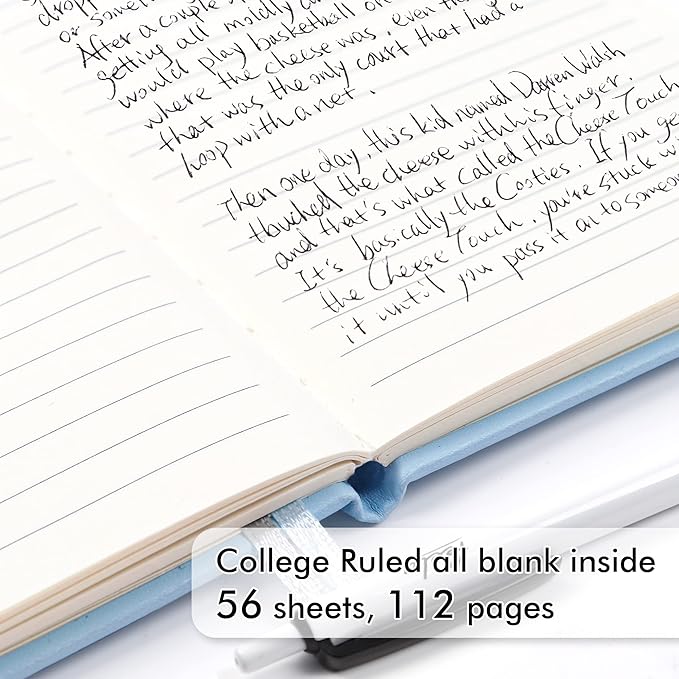 dropp
or somet
After a couple
getting all moldy a
would play basketball on
where the cheese was, even th
that was the only court that had a
hoop with a net.
Then one day, this kid named Darren Walsh
touched the cheese with his finger.
and that's what called the Cheese Touch
It's basically the Cooties. If you ge
the Cheese Touch, you're stuck wi
it until you pass it on to someo
College Ruled all blank inside
56 sheets, 112 pages